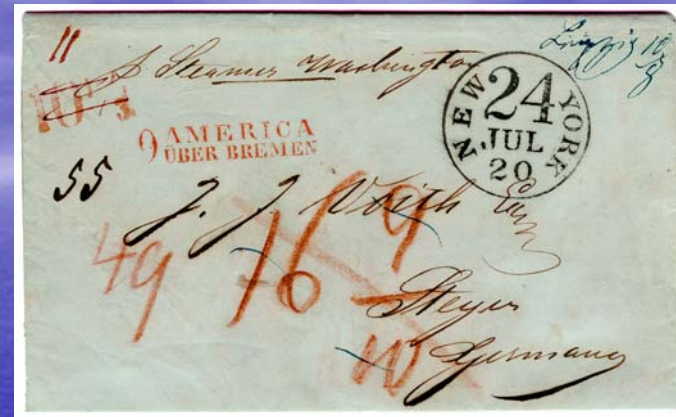 11
p Steamer Washington
Leipzig 10/8
10
NEW YORK
24
JUL
20
9 AMERICA
ÜBER BREMEN
55
J. J.
49 16 9
Steyer
Germany